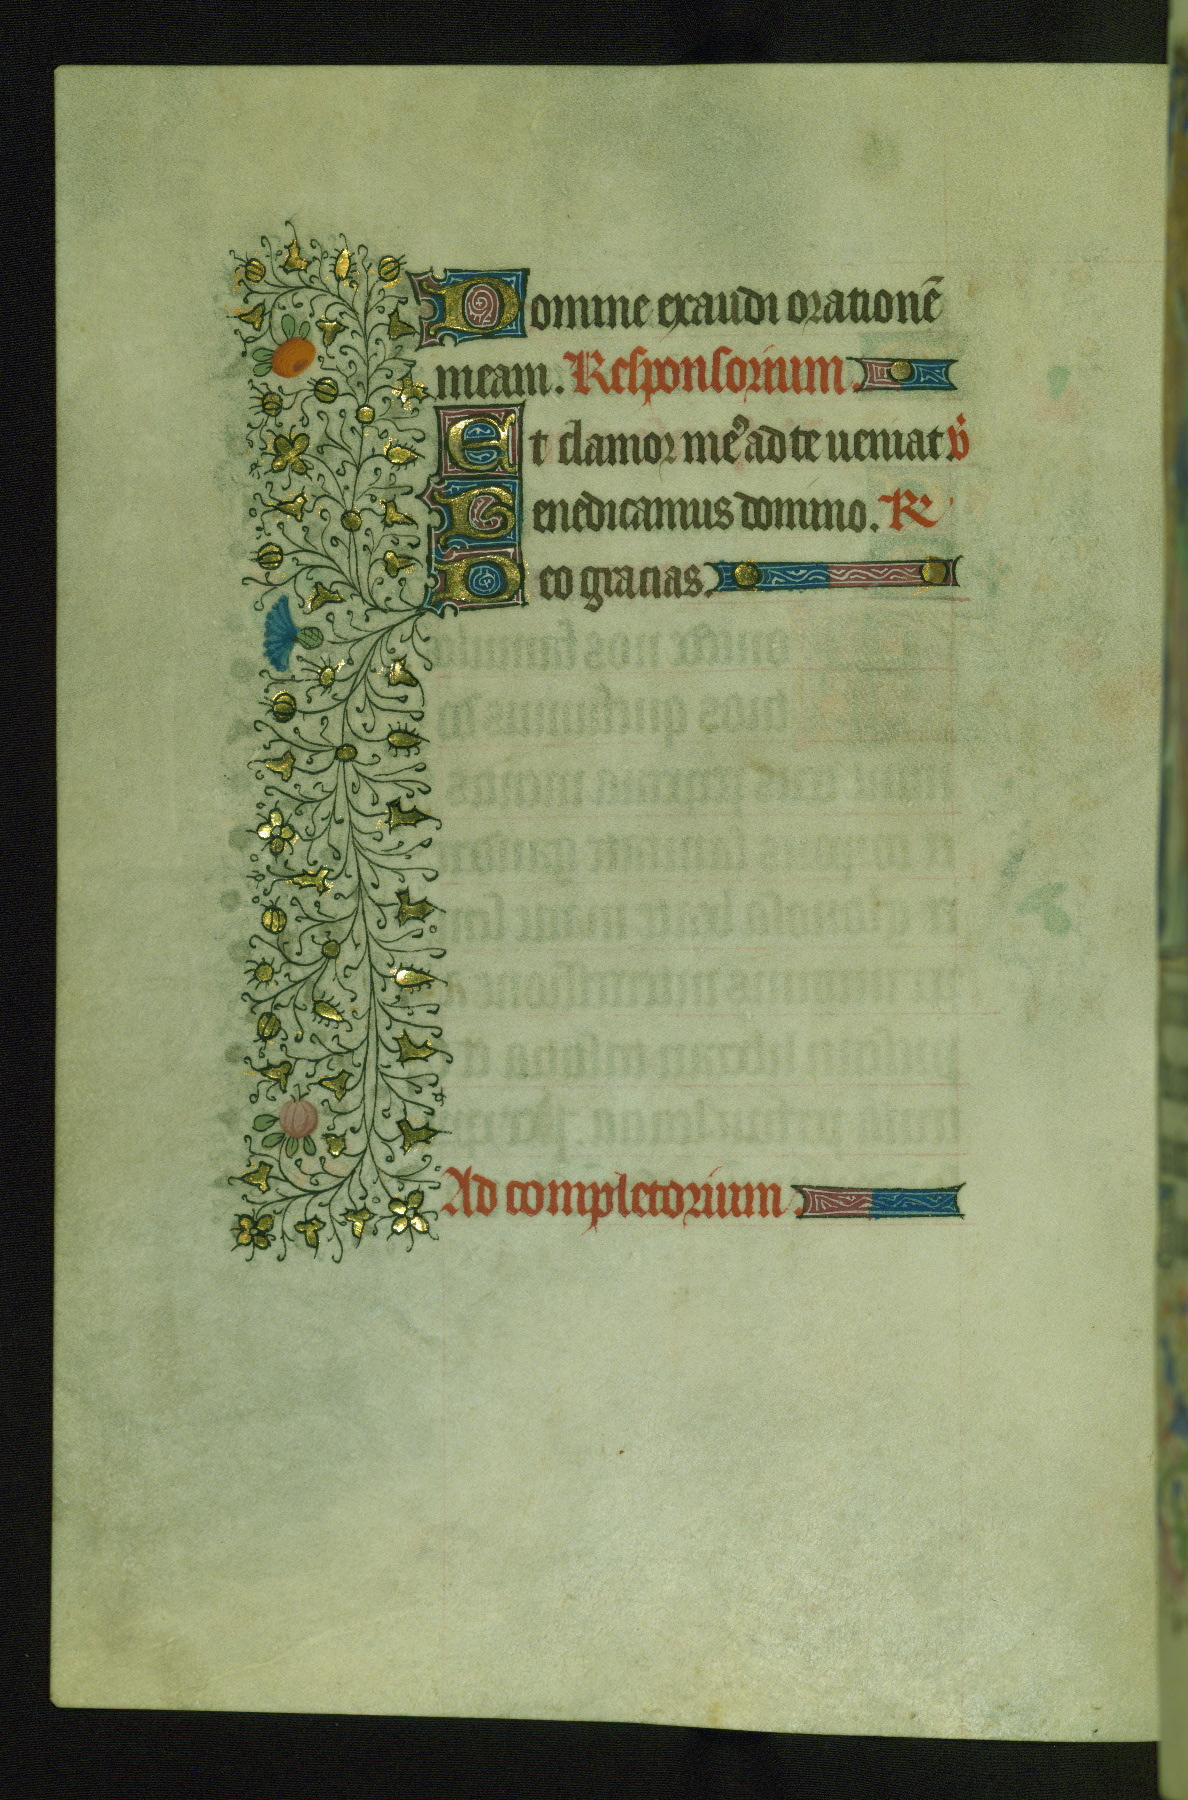 Domine exaudi orationē
meam. Responsorium.
Et clamor me᷒ ad te ueniat v̇
Benedicamus domino. R
Deo gracias.
Ad completorium.